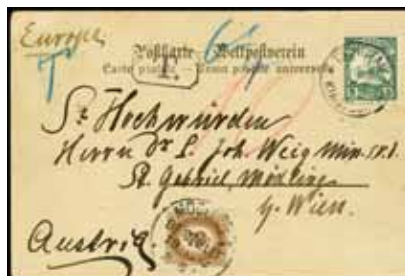 Europe
Postkarte Weltpostverein
Carte postale Union postale universelle
T.
T
Sr Hochwürden
Herrn Dr L. Joh. Weig
St. Gabriel, Mödling
b. Wien.
Austria.